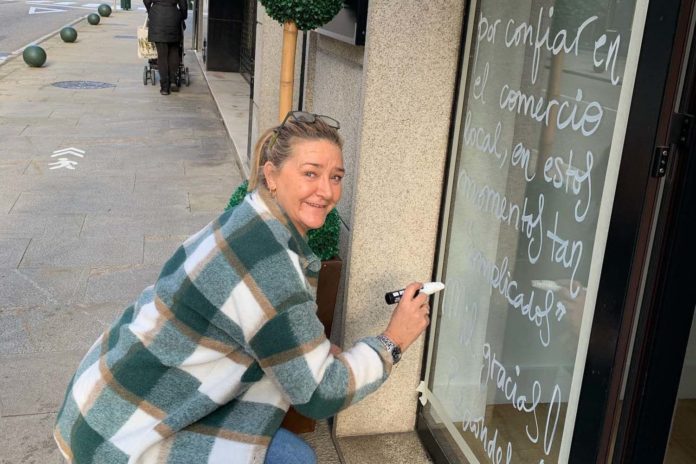 por confiar en
el comercio
local, en estos
momentos tan
complicados"
gracias!